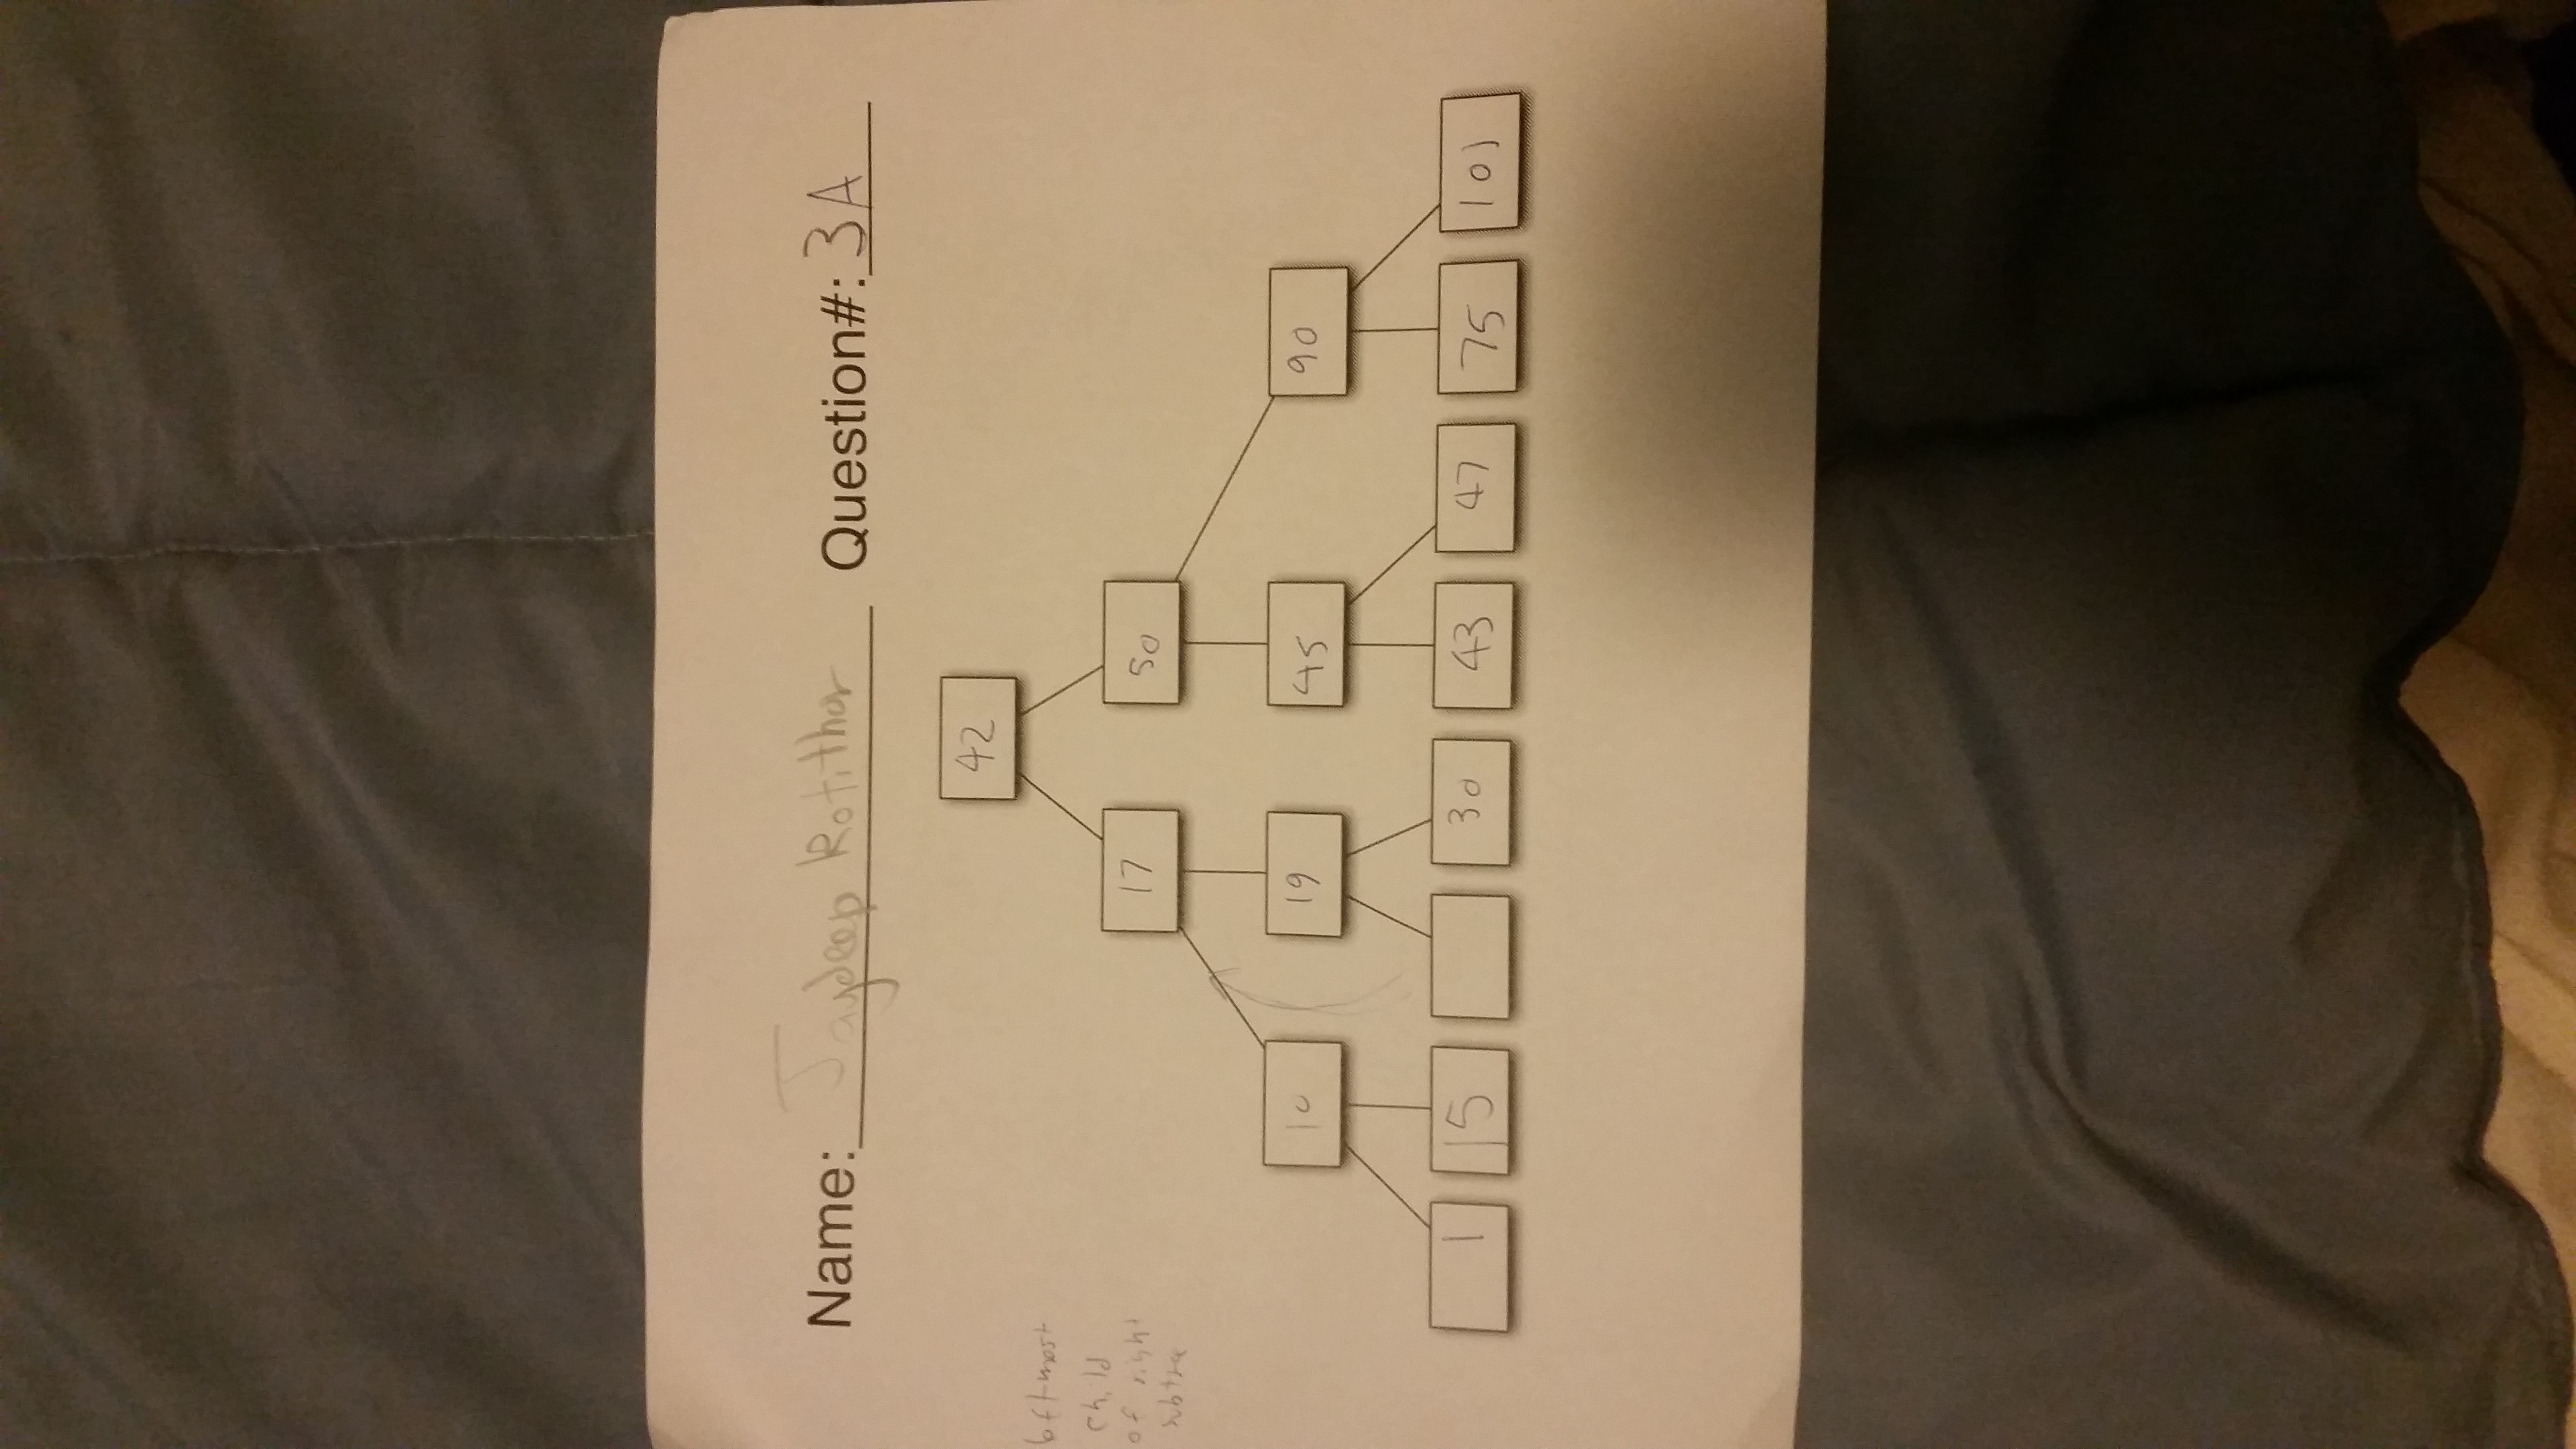 Name: Jaydeep Rotithor Question#: 3A
42
leftmost
child
of right
subtree
17 50
10 19 45 90
1 15 30 43 47 75 101